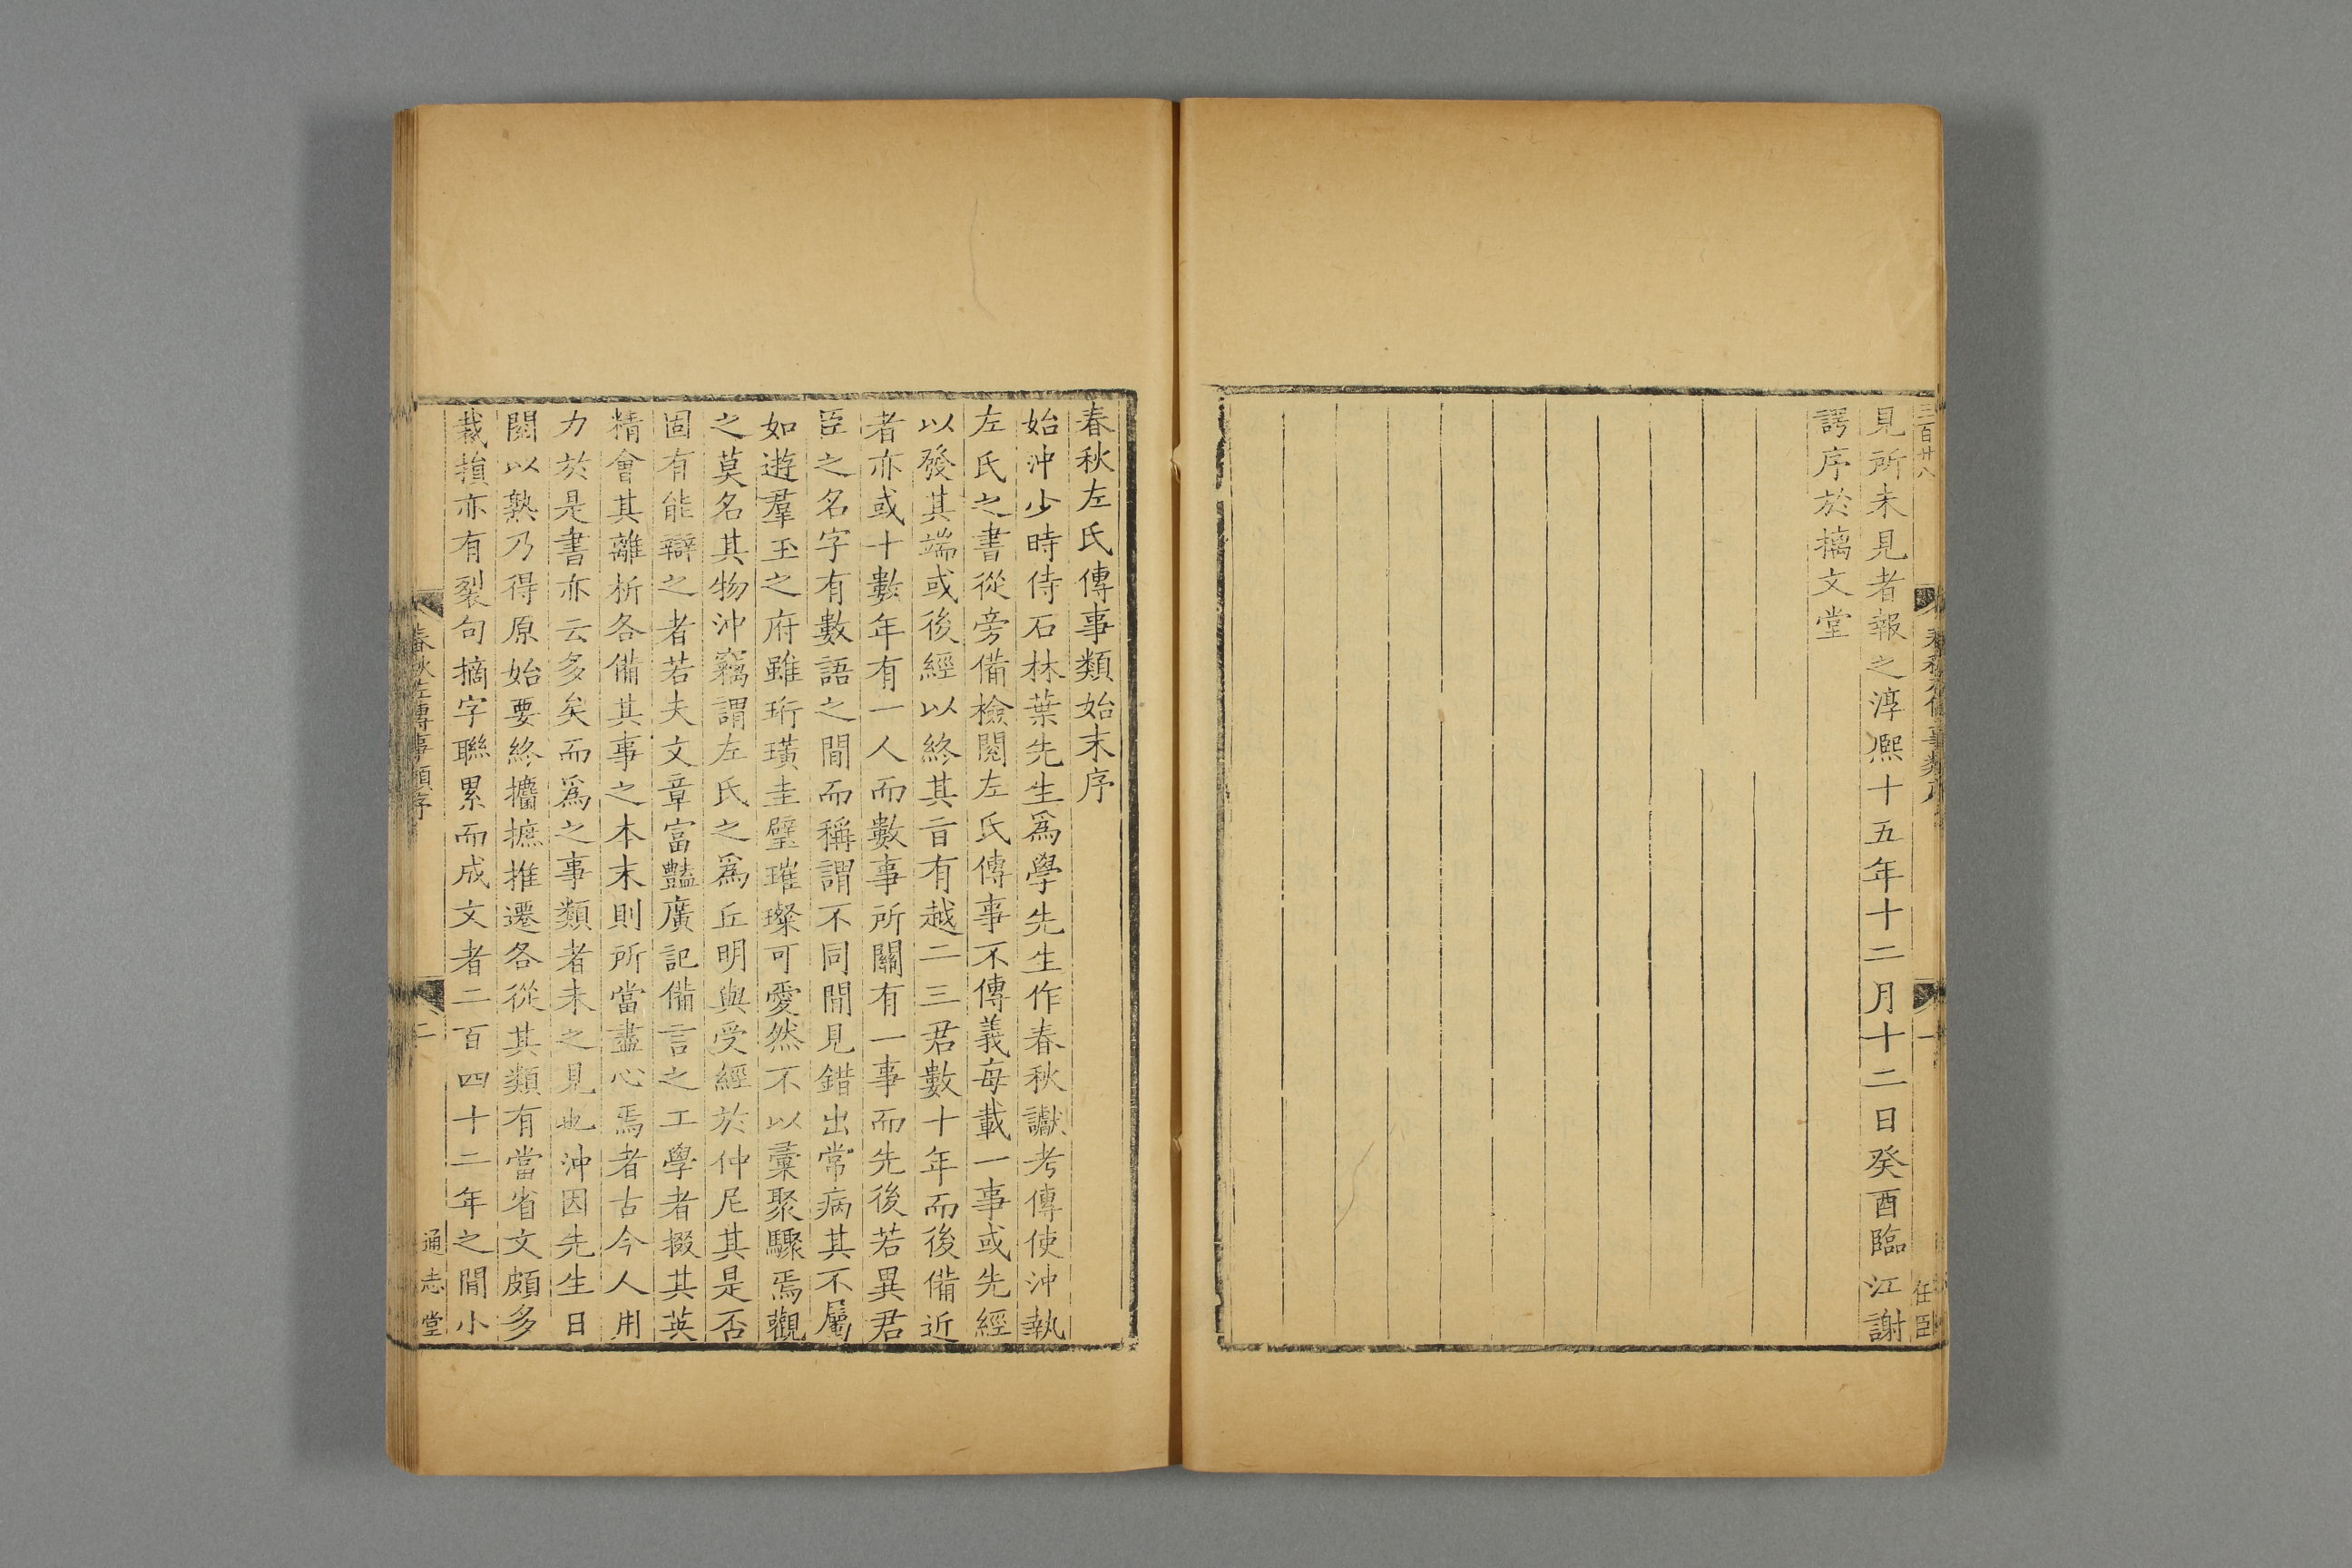 三百廿八
見所未見者報之淳熈十五年十二月十二日癸酉臨江謝
諤序於摛文堂
春秋左氏傳事類始末序
始沖少時侍石林葉先生爲學先生作春秋讞考傳使沖執
左氏之書從旁備檢閱左氏傳事不傳義每載一事或先經
以發其端或後經以終其旨有越二三君數十年而後備近
者亦或十數年有一人而數事所關有一事而先後若異君
臣之名字有數語之間而稱謂不同間見錯出常病其不屬
如遊羣玉之府雖珩璜圭璧璀璨可愛然不以彙聚驟焉觀
之莫名其物沖竊謂左氏之爲丘明與受經於仲尼其是否
固有能辯之者若夫文章富豔廣記備言之工學者掇其英
精會其離析各備其事之本末則所當盡心焉者古今人用
力於是書亦云多矣而爲之事類者未之見也沖因先生日
閱以熟乃得原始要終攟摭推遷各從其類有當省文頗多
裁損亦有裂句摘字聯累而成文者二百四十二年之間小
春秋左傳事類序
二
通志堂